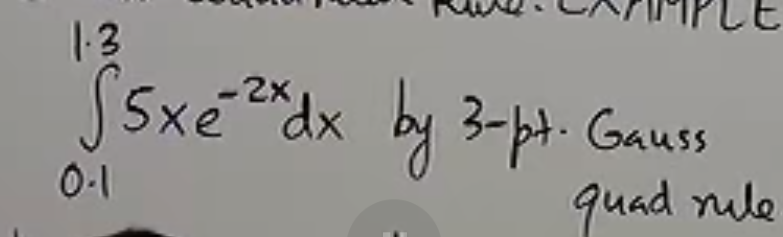 Rule. EXAMPLE
1.3
∫5xe^-2x dx by 3-pt. Gauss
0.1
quad rule